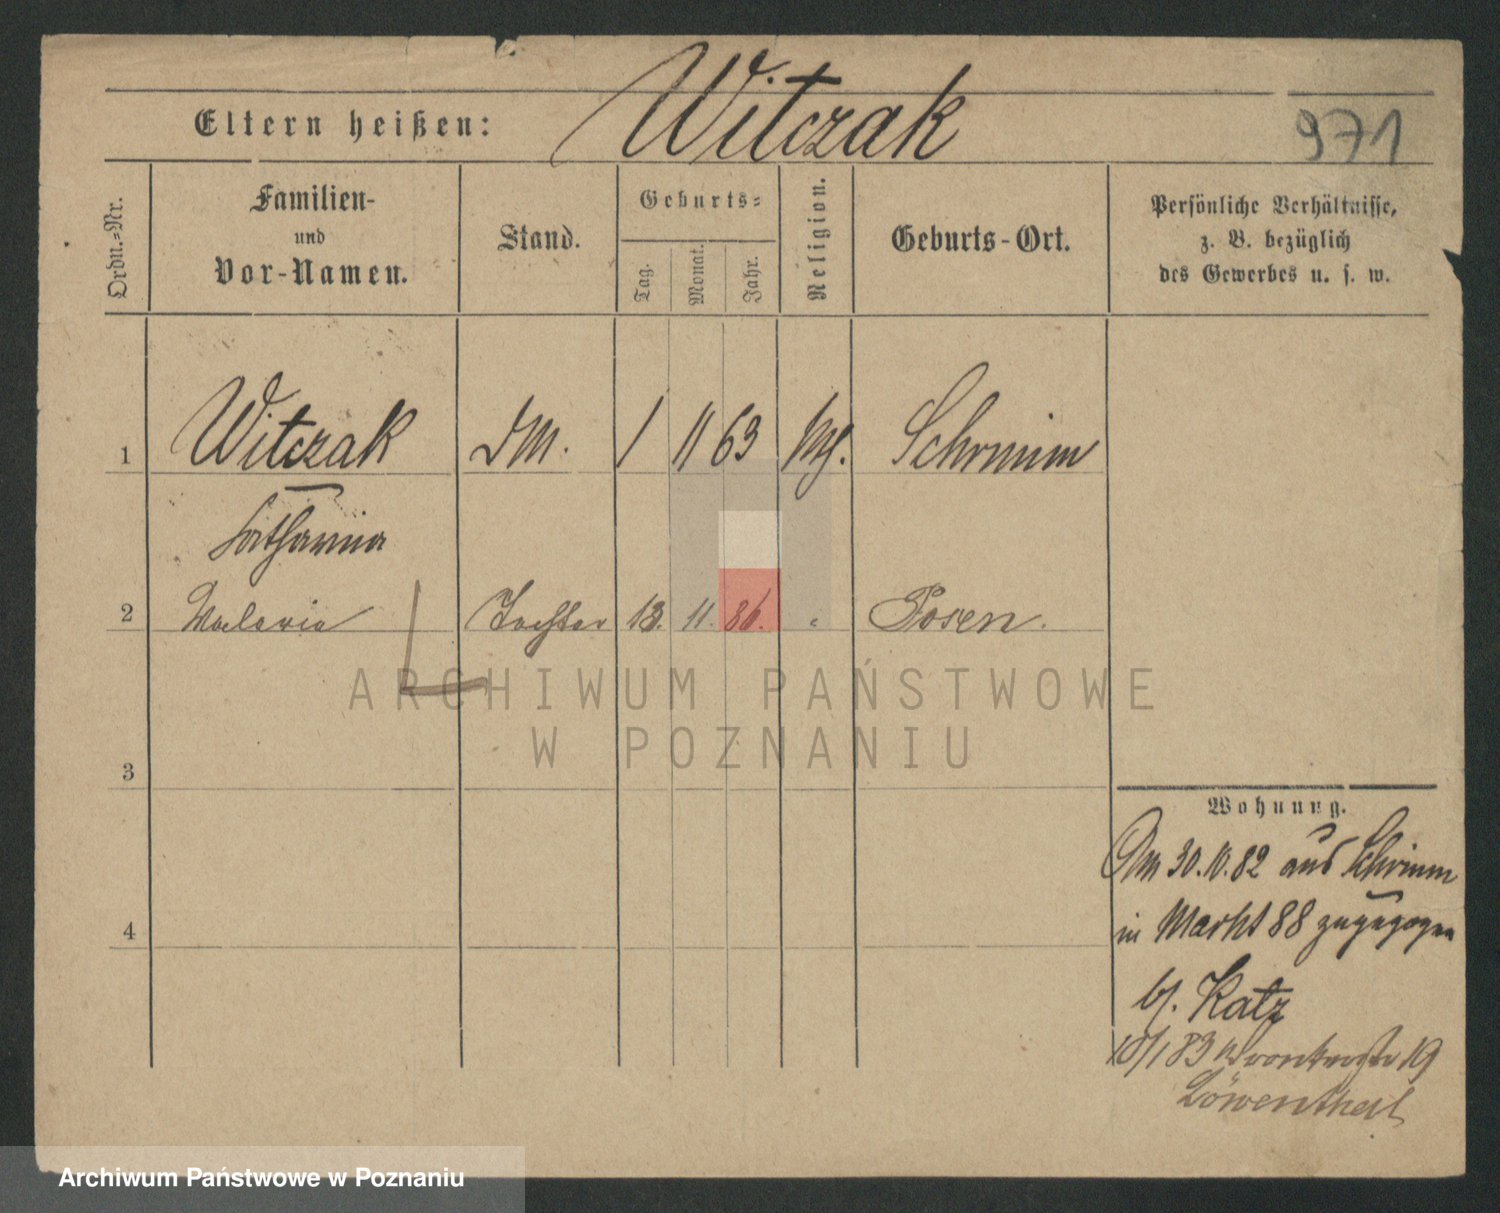 Eltern heißen: Witczak
971
Ordn.-Nr.
Familien-
und
Vor-Namen.
Stand.
Geburts-
Tag.
Monat.
Jahr.
Religion.
Geburts-Ort.
Persönliche Verhältnisse,
z. B. bezüglich
des Gewerbes u. s. w.
1 Witczak DM. 1 11 63 Schrimm
Catharina
2 Valeria Tochter 13. 11. 86. Posen.
ARCHIWUM PAŃSTWOWE
W POZNANIU
3
Wohnung.
Am 30.10.82 aus Schrimm
4
in Markt 88 zugezogen
bj. Katz
10/1 83 Wronkerstr 19
Löwenthal
Archiwum Państwowe w Poznaniu